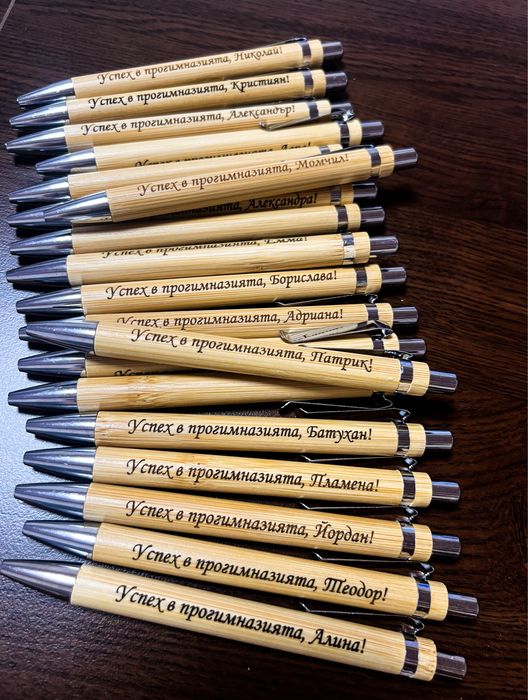 Успех в прогимназията, Николай!
Успех в прогимназията, Кристиян!
Успех в прогимназията, Александър!
Успех в прогимназията,
Успех в прогимназията, Момчил!
Александра!
Успех в прогимназията, Емма!
Успех в прогимназията, Борислава!
Успех в прогимназията, Адриана!
Успех в прогимназията, Патрик!
Успех в прогимназията, Батухан!
Успех в прогимназията, Пламена!
Успех в прогимназията, Йордан!
Успех в прогимназията, Теодор!
Успех в прогимназията, Алина!